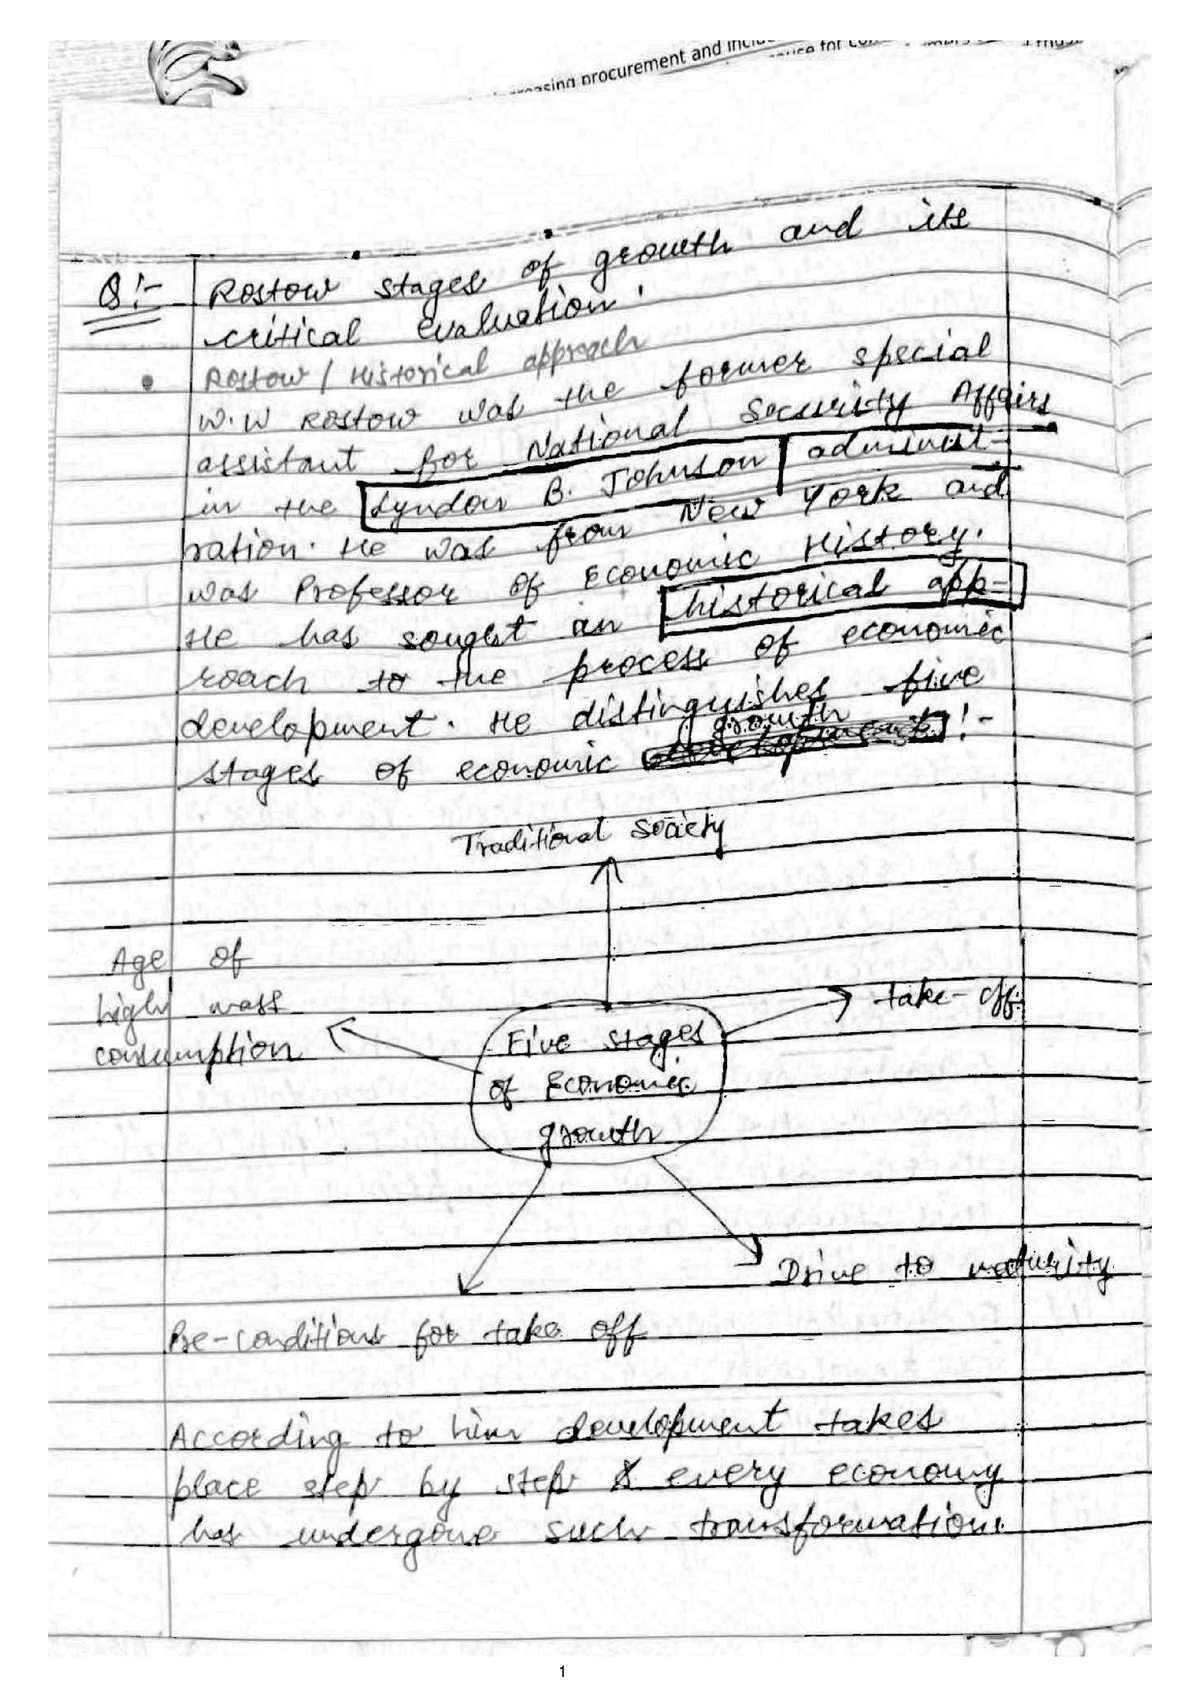 creasing procurement and
Q:- Rostow stages of growth and its
critical evaluation.
• Rostow / Historical approach
W.W Rostow was the former special
assistant for National Security Affairs
in the Lyndon B. Johnson administ-
ration. He was from New York and
was Professor of Economic History.
He has sought an historical app-
roach to the process of economic
development. He distinguishes five
growth
stages of economic development :-
Traditional Society
Age of
high mass
consumption
take-off
Five stages
of Economic
growth
Drive to maturity
Pre-conditions for take off
According to him development takes
place step by step & every economy
has undergone such transformation.
1